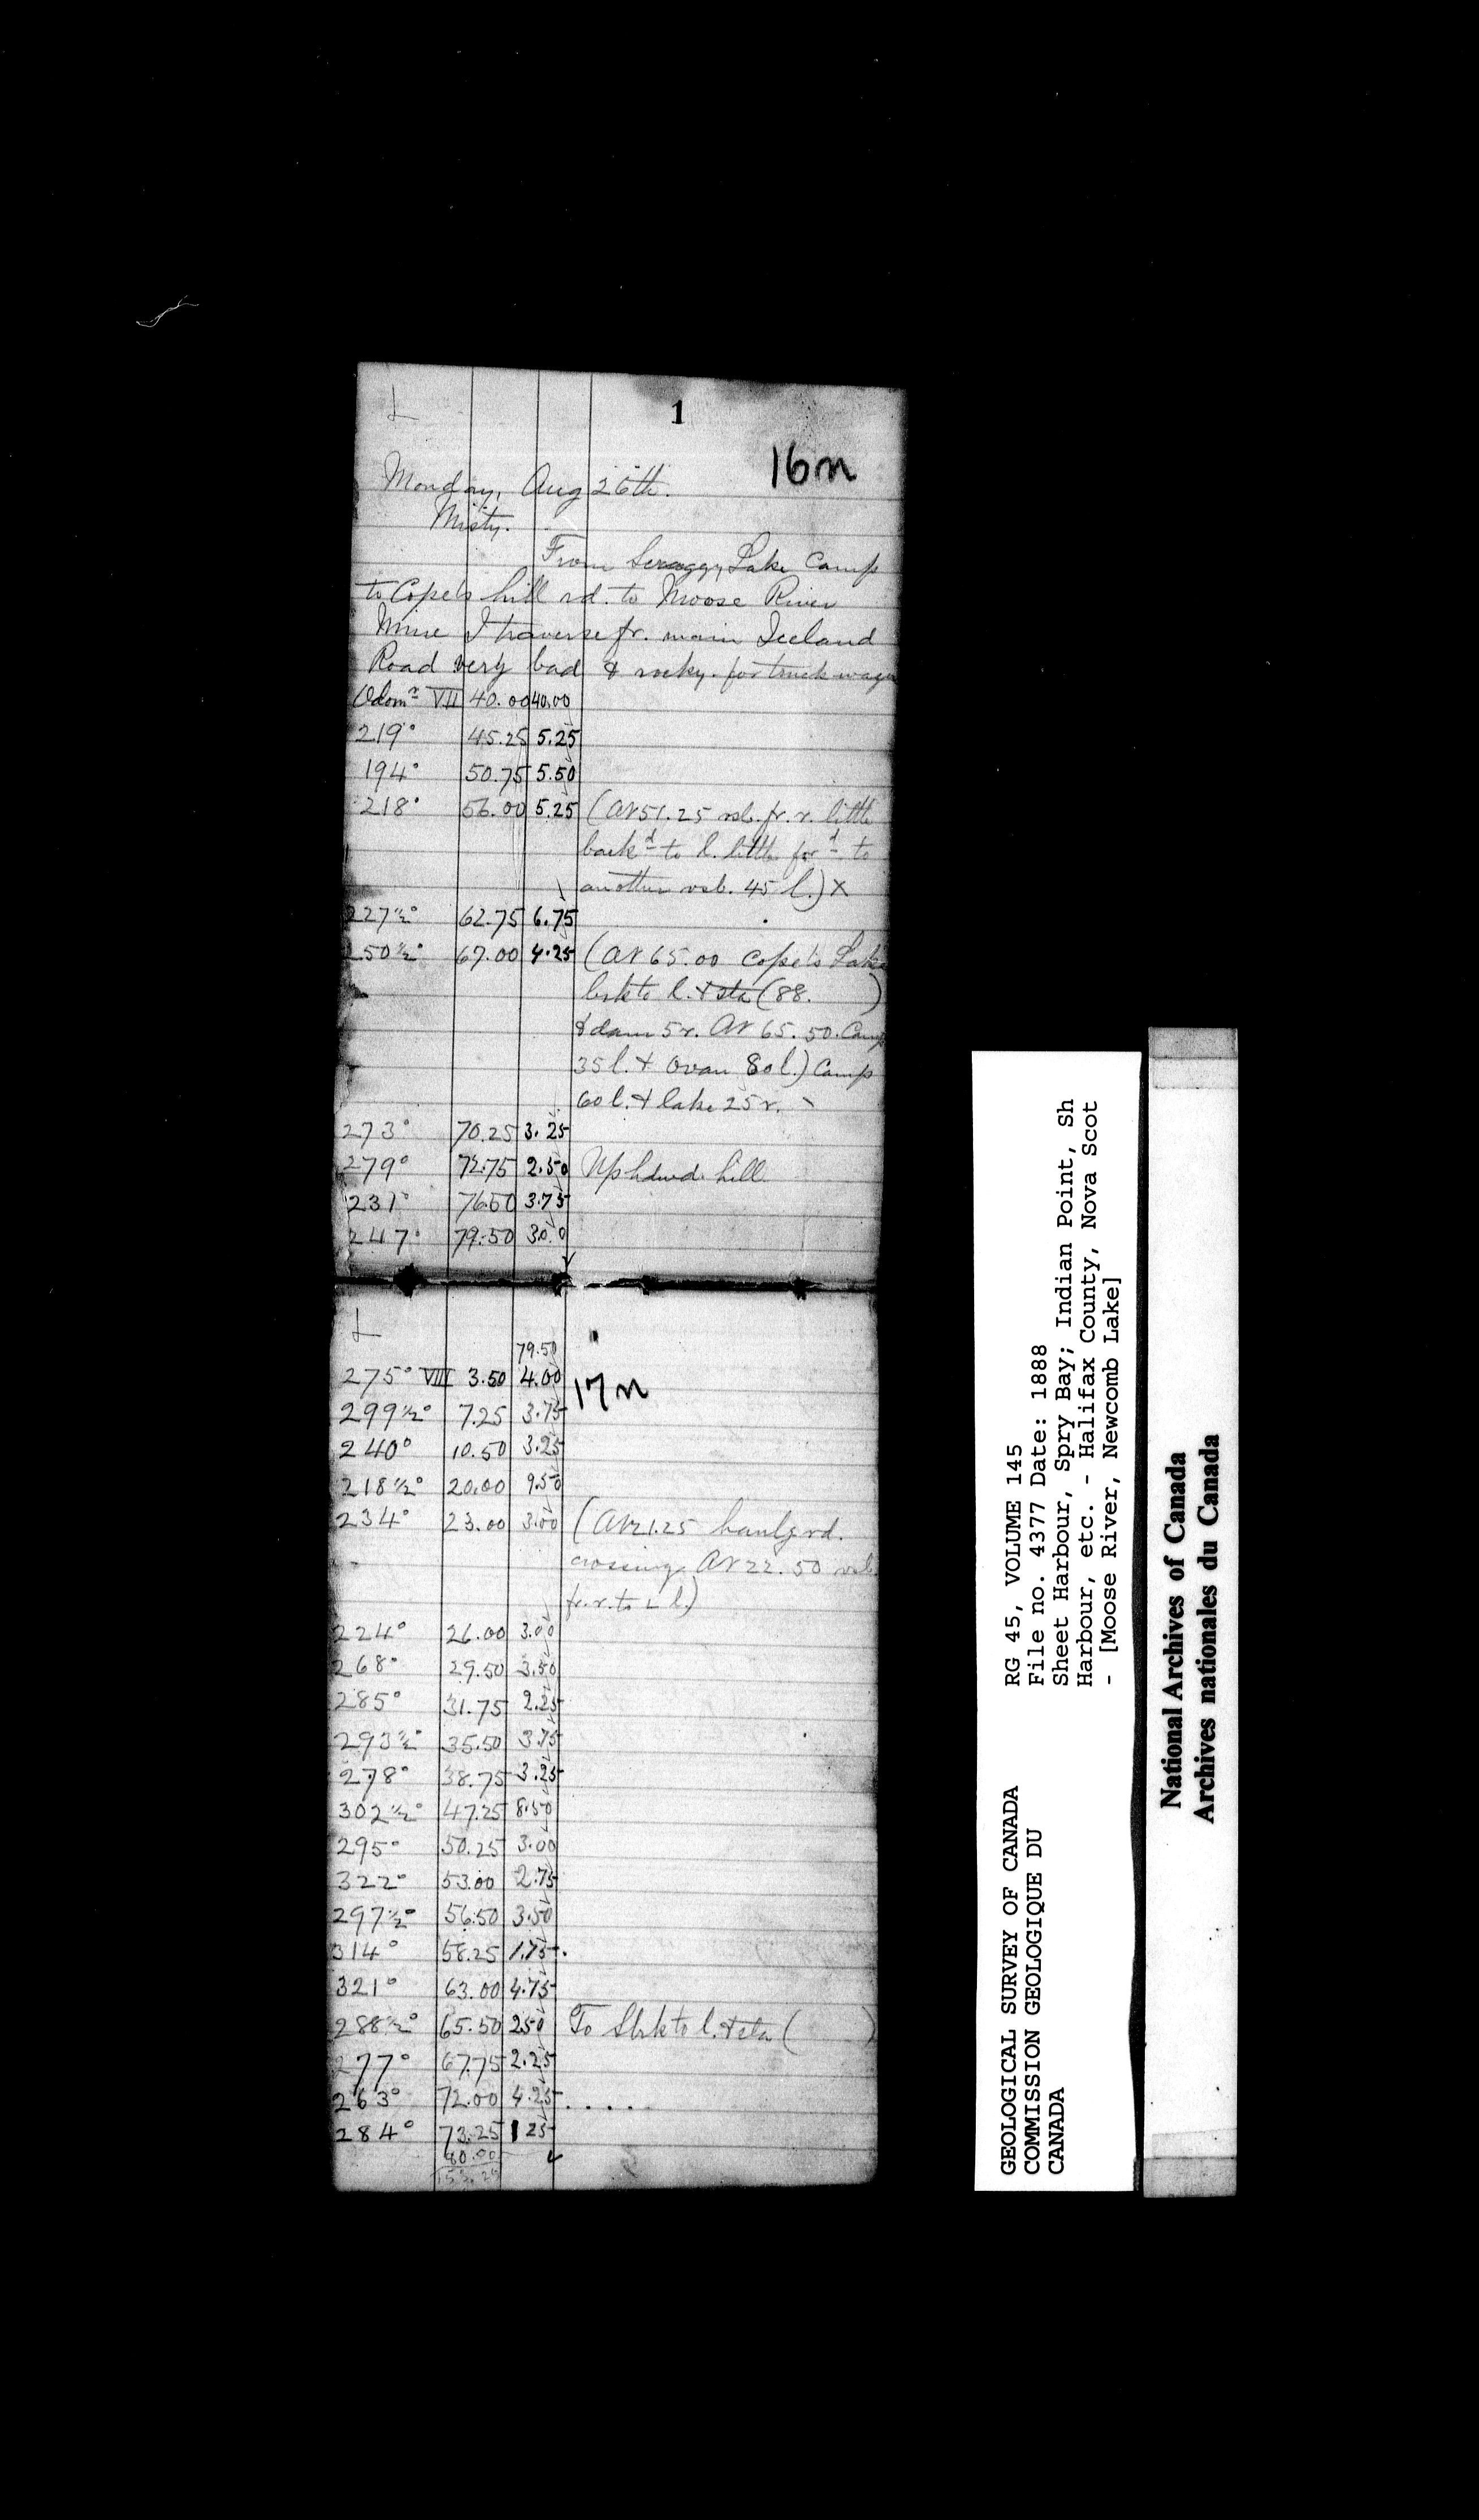 1
16m
Monday, Aug 26th.
Misty.
From Scraggy Lake Camp
to Cope's hill rd. to Moose River
Mine I traverse fr. main
Road very bad & rocky. for truck wagn
Odomr VII 40.00 40.00
219° 45.25 5.25
194° 50.75 5.50
218° 56.00 5.25 (At 51.25 vsb. fr. r. little
backd to l. little ford to
another vsb. 45 l.) X
227½° 62.75 6.75
250½° 67.00 4.25 (At 65.00 Cope's Lake
brk to l. & sta (88. )
& dam 5 r. At 65.50. Camp
35 l. & 80 l.) Camp
60 l. & lake 25 r.
273° 70.25 3.25
279° 72.75 2.50 Up hdwd. hill
231° 76.50 3.75
247° 79.50 30.0
79.50
275° VIII 3.50 4.00
17m
299½° 7.25 3.75
240° 10.50 3.25
218½° 20.00 9.50
234° 23.00 3.00 (At 21.25 haulg rd.
crossing. At 22.50 vsb.
fr. r. to L l.)
224° 26.00 3.00
268° 29.50 3.50
285° 31.75 2.25
293½° 35.50 3.75
278° 38.75 3.25
302½° 47.25 8.50
295° 50.25 3.00
322° 53.00 2.75
297½° 56.50 3.50
314° 58.25 1.75
321° 63.00 4.75
288½° 65.50 250 To Sbrk to l. & sta ( )
277° 67.75 2.25
263° 72.00 4.25 . . . . .
284° 73.25 1 25
80.00
GEOLOGICAL SURVEY OF CANADA
COMMISSION GEOLOGIQUE DU
CANADA
RG 45, VOLUME 145
File no. 4377 Date: 1888
Sheet Harbour, Spry Bay; Indian Point, Sh
Harbour, etc. - Halifax County, Nova Scot
- [Moose River, Newcomb Lake]
National Archives of Canada
Archives nationales du Canada